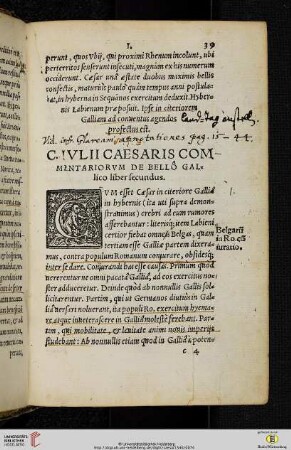 I. 39
perunt, quos Vbij, qui proximi Rhenum incolunt, ubi
perterritos senserunt insecuti, magnum ex his numerum
occiderunt. Cæsar una æstate duobus maximis bellis
confectis, maturius paulo quàm tempus anni postulabat,
in hyberna in Sequanos exercitum deduxit. Hybernis
Labienum præposuit. Ipse in citeriorem
Galliam ad conuentus agendos
profectus est.
pag. 15 - 44.
C. IVLII CAESARIS COM-
MENTARIORVM DE BELLO GAL-
lico liber secundus.
CVM esset Cæsar in citeriore Gallia
in hybernis (ita uti supra demon-
strauimus) crebri ad eum rumores
afferebantur: literisq; item Labieni
certior fiebat omneis Belgas, quam
tertiam esse Galliæ partem dixera-
mus, contra populum Romanum coniurare, obsidesq;
inter se dare. Coniurandi has esse causas. Primum quòd
uererentur ne omni pacata Gallia, ad eos exercitus no-
ster adduceretur. Deinde quòd ab nonnullis Gallis sol-
licitarentur. Partim, qui ut Germanos diutius in Gal-
lia uersari noluerant, ita populi Ro. exercitum hyema-
re atque inueterascere in Gallia molestè ferebant. Par-
tim, qui mobilitate, & leuitate animi nouis imperijs
studebant: Ab nonnullis etiam quòd in Gallia à poten-
c 4
Belgarũ
in Ro. cõ
iuratio.
UNIVERSITÄTS-
BIBLIOTHEK
HEIDELBERG
© Universitätsbibliothek Heidelberg
Baden-Württemberg